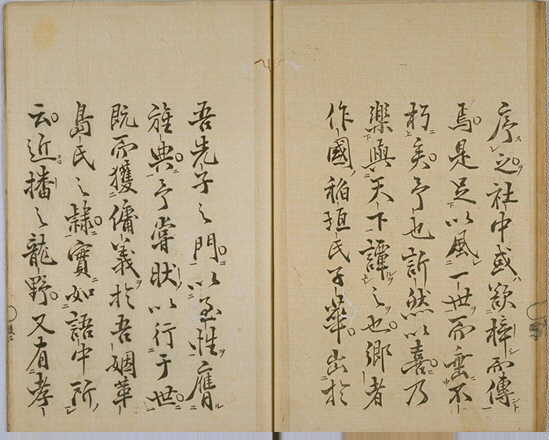 序之社中或欲梓而傳
焉是足以風一世而垂不
朽矣予也訢然以喜乃
樂與天下譚之也鄉者
作國稲垣氏子華出於
吾先子之門以至性膺
旌典予嘗狀以行于世
既而獲傭義於吾姻華
島氏之隷實如語中所
云近播之龍野又有孝